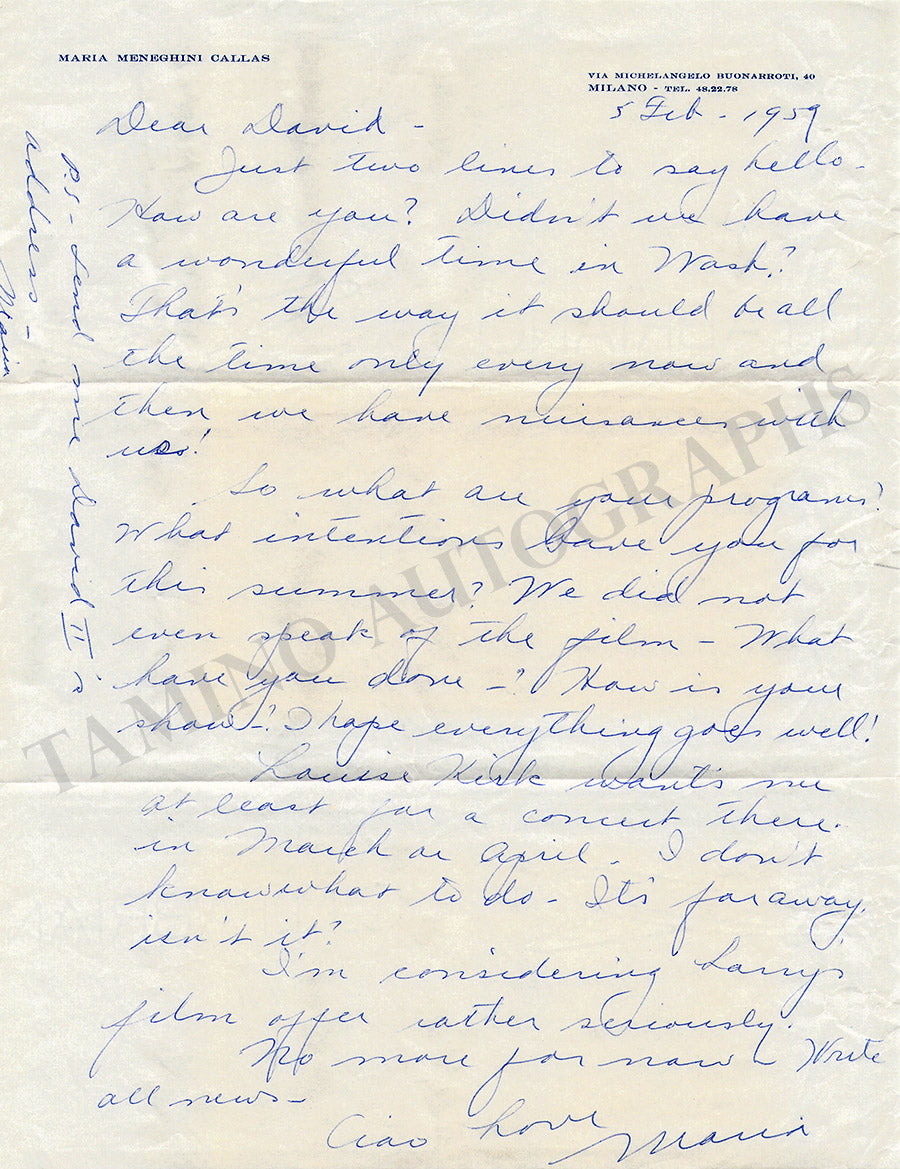 MARIA MENEGHINI CALLAS
VIA MICHELANGELO BUONARROTI, 40
MILANO - TEL. 48.22.78
5 Feb - 1959
Dear David -
Just two lines to say hello -
How are you? Didn't we have
a wonderful time in Wash?
That's the way it should be all
the time only every now and
then we have nuisances with
us!
So what are your programs?
What intentions have you for
this summer? We did not
even speak of the film - What
have you done -? How is your
show -? I hope everything goes well!
Louise Kirk wants me
at least for a concert there.
in March or April - I don't
know what to do - It's far away,
isn't it?
I'm considering Larry's
film offer rather seriously.
No more for now - Write
all news -
Ciao Love
Maria
P.S - Send me David II's
address -
Maria
TAMINO AUTOGRAPHS